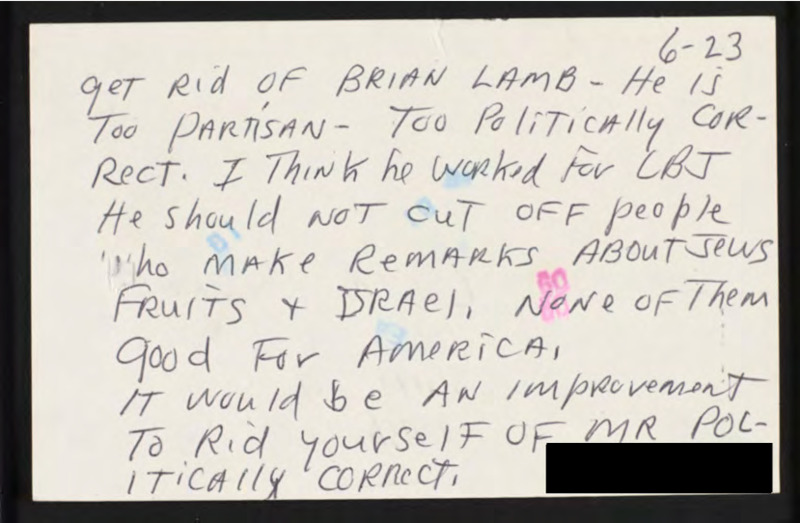 6-23
GET Rid OF BRIAN LAMB - He is
Too PARTISAN - Too Politically Cor-
Rect. I Think he worked For LBJ
He should NOT CUT OFF people
who MAKE Remarks ABOUT Jews
FRUITS + ISRAel. NoNe OF Them
Good For AmericA.
IT would be AN Improvement
To Rid yourself OF MR POL-
ITICAlly CORRect.